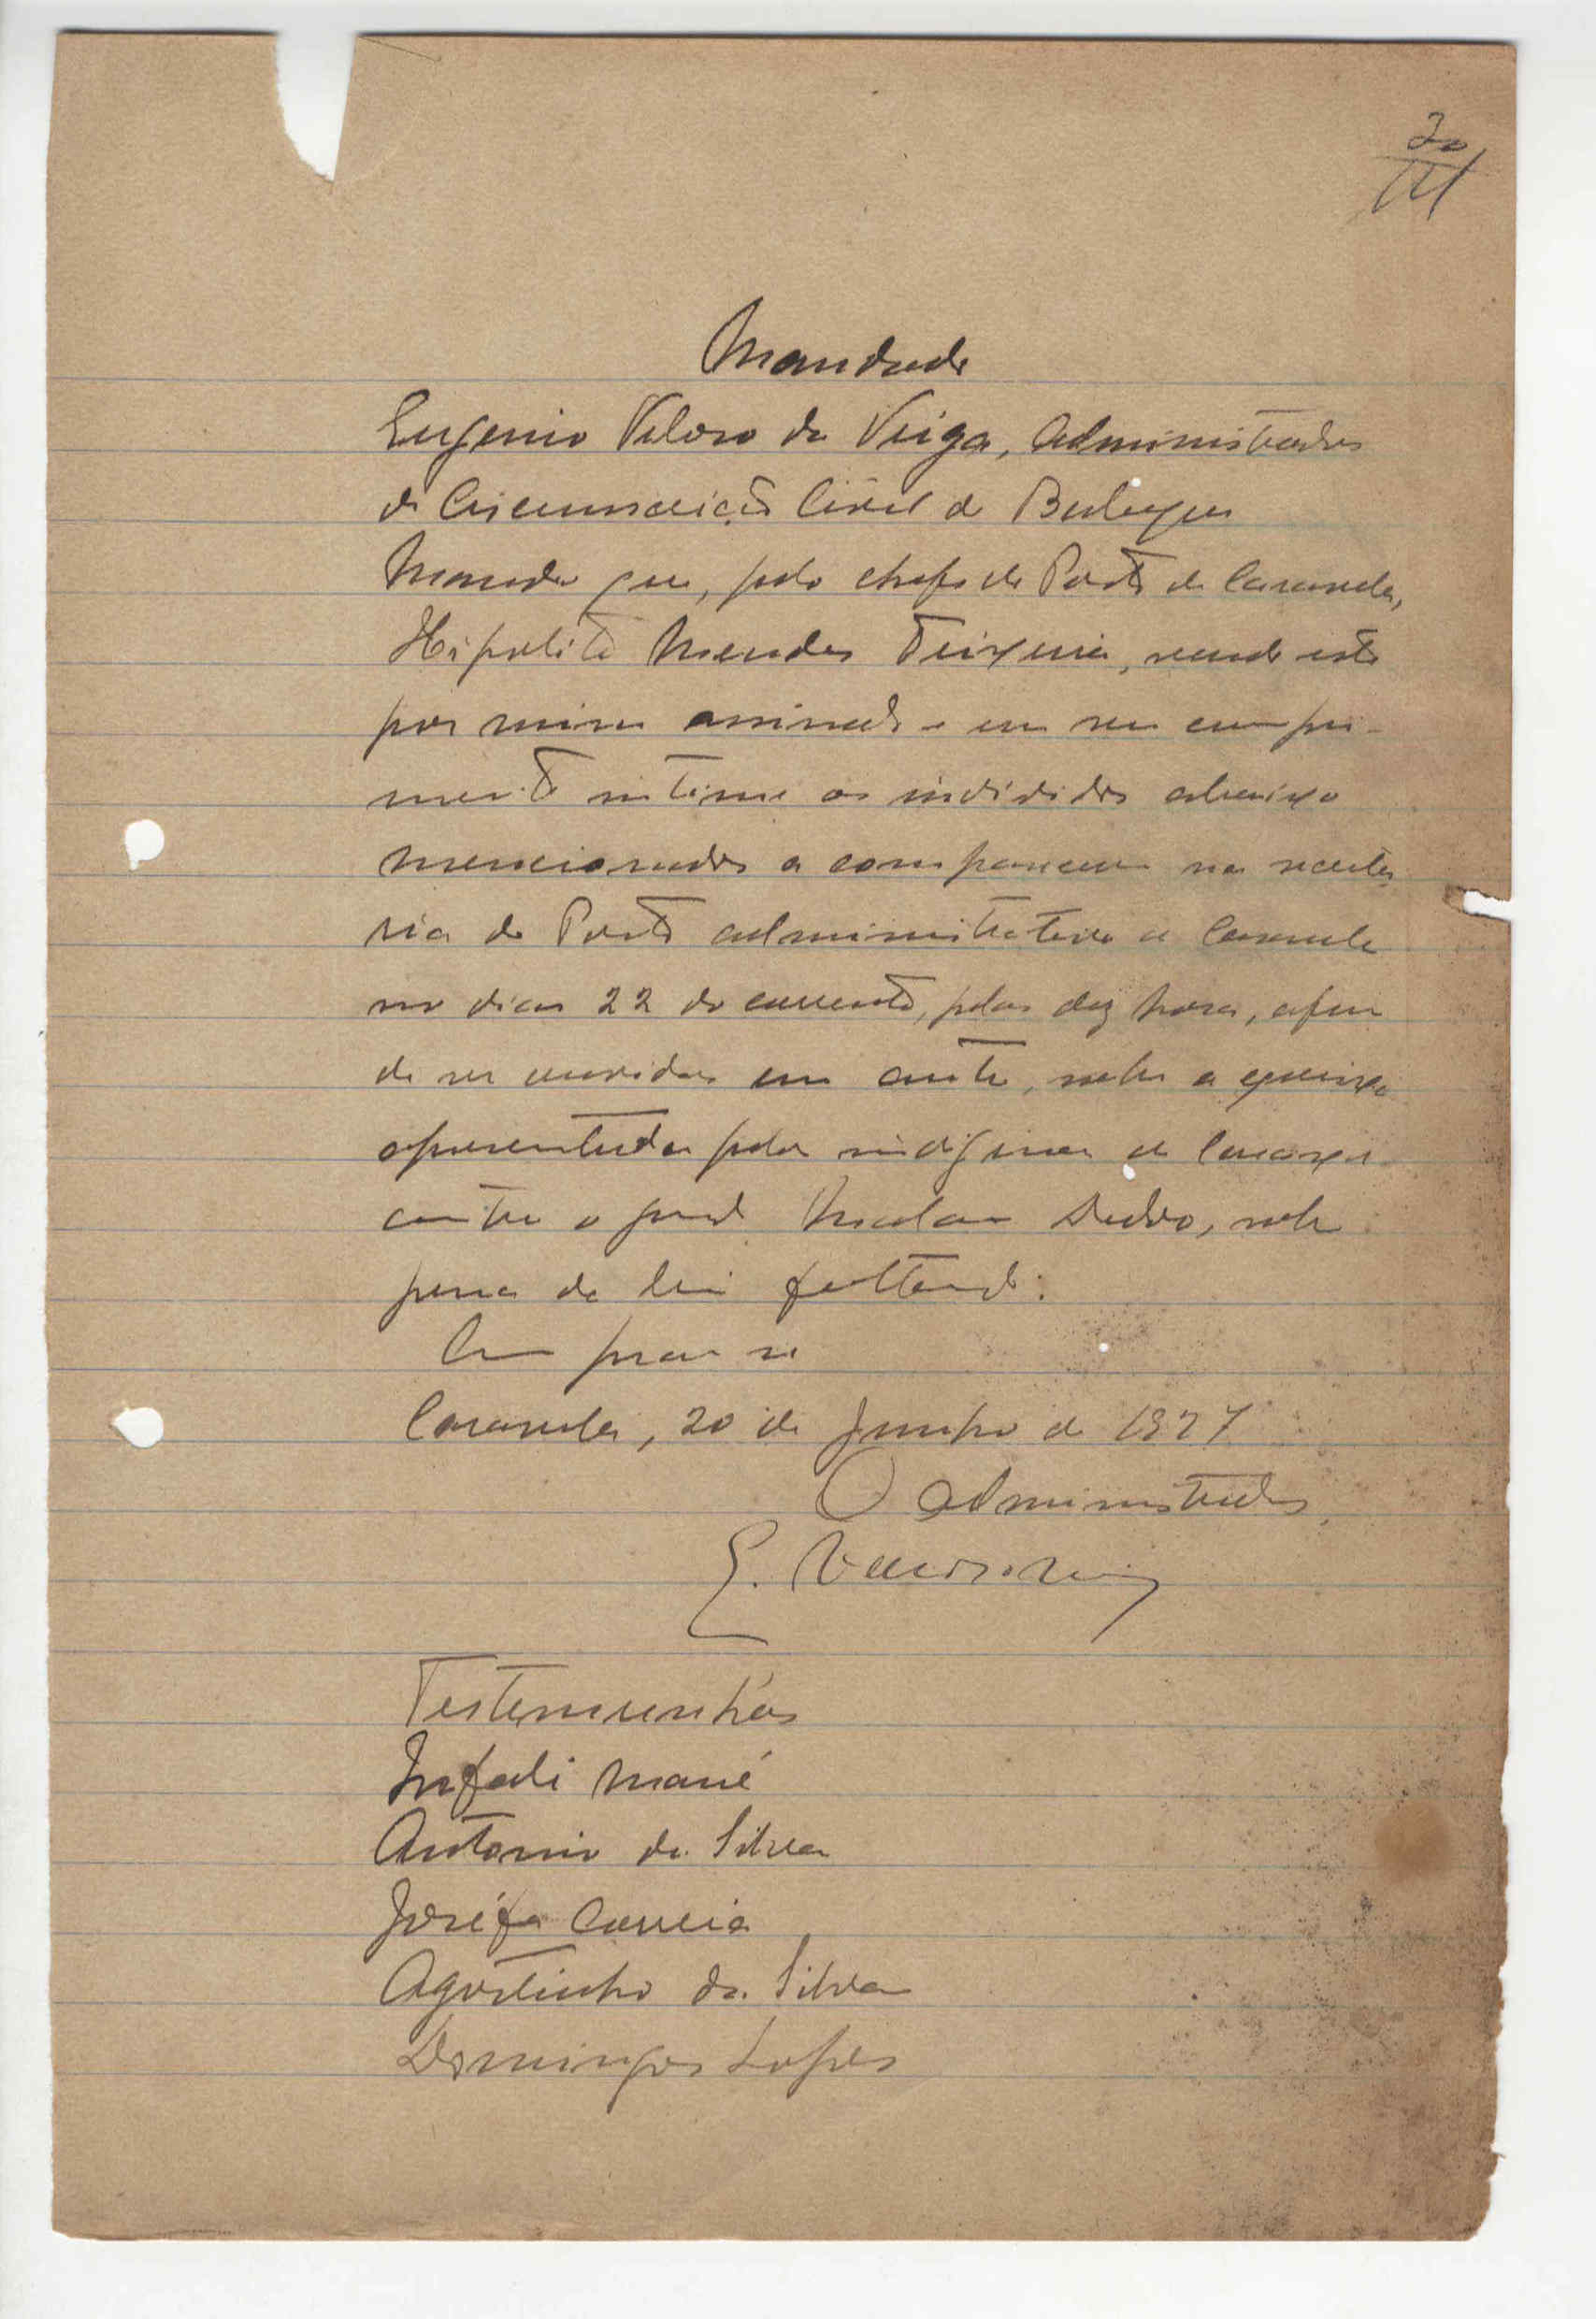 20
Mandado
Eugenio Veloso da Veiga, Administrador
da Circunscrição Civil de
Manda que, pelo chefe do Posto de Caravela,
Hipolito Mendes Teixeira, sendo este
por mim assinado e em seu cumpri-
mento intime os individuos abaixo
mencionados a comparecerem na secreta
ria do Posto administrativo de Caravela
no dia 22 do corrente, pelas dez horas, afim
de ser ouvidos em auto, sobre a queixa
apresentada pelos indigenas de
contra o guarda Nicolau, sob
pena da lei faltando.
Cumpra se
Caravela, 20 de Junho de 1927
O administrador,
E.
Testemunhas
Infali Mané
Antonio da Silva
Joséfa Correia
Agostinho da Silva
Domingos Lopes